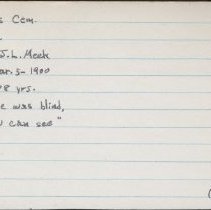 s Cem.
J.L. Meek
ar. 5-1900
8 yrs.
e was blind,
I can see"
(